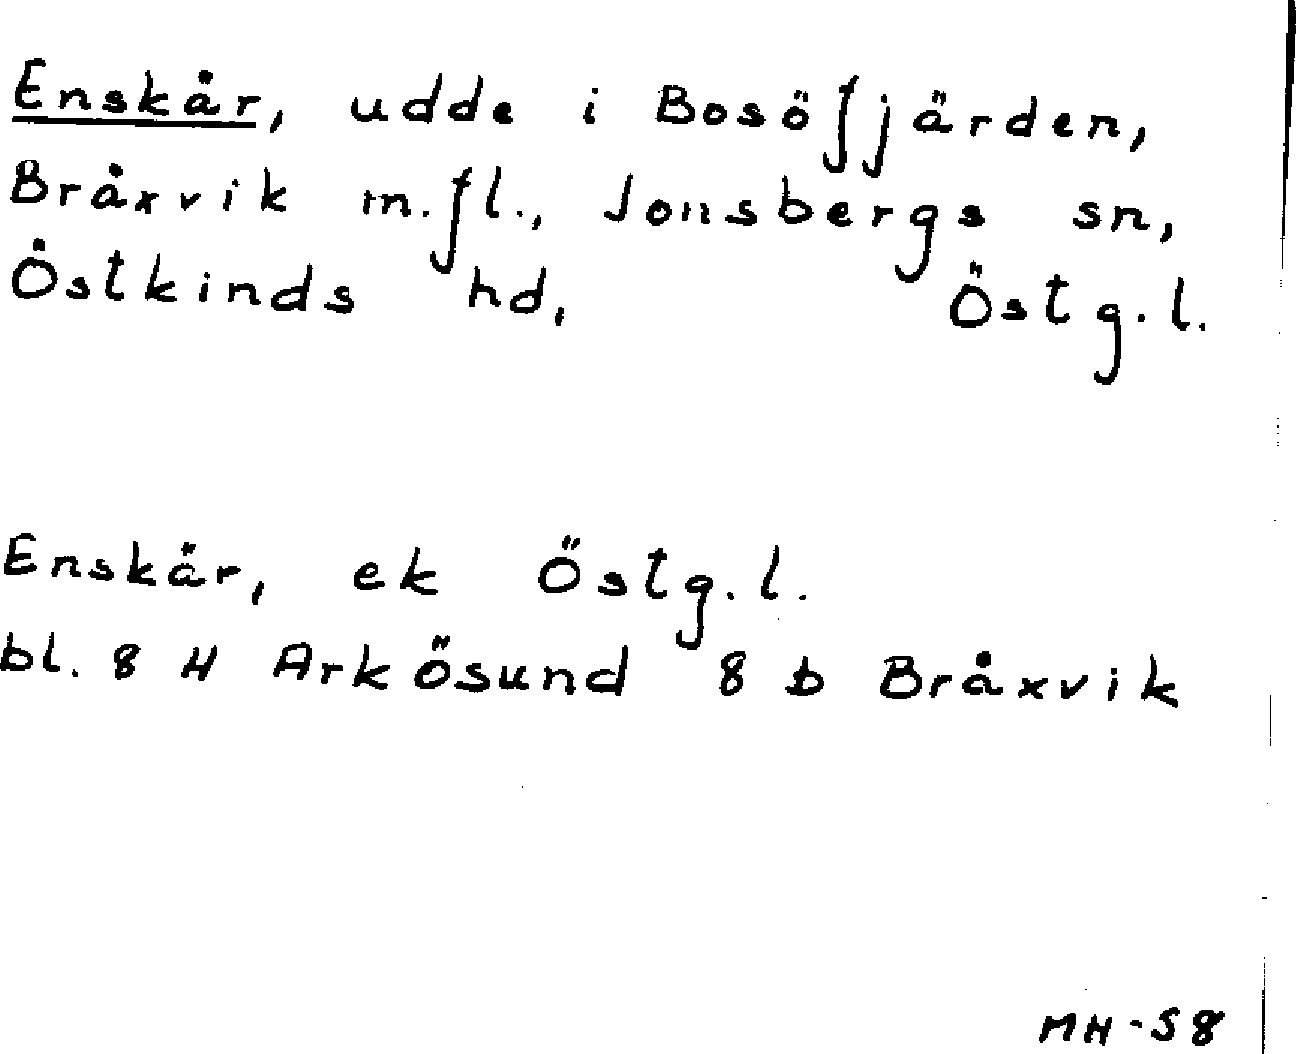 Enskår, udde i Bosöfjärden,
Bråxvik m.fl., Jonsbergs sn,
Östkinds hd, Östg.l.
Enskär, ek Östg.l.
bl. 8 H Arkösund 8 b Bråxvik
MH-58